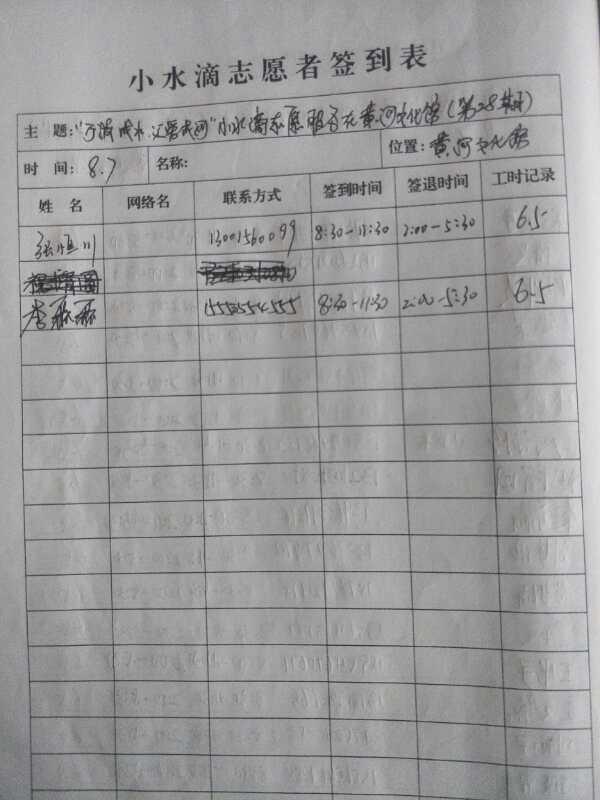 小水滴志愿者签到表
主 题: "万滴成水,汇聚成河"小水滴志愿服务在黄河文化馆(第28期)
时 间: 8.7 名称: 位置: 黄河文化馆
姓 名 网络名 联系方式 签到时间 签退时间 工时记录
张恒川 13001560099 8:30-11:30 2:00-5:30 6.5
李 8:30-11:30 2:00-5:30 6.5